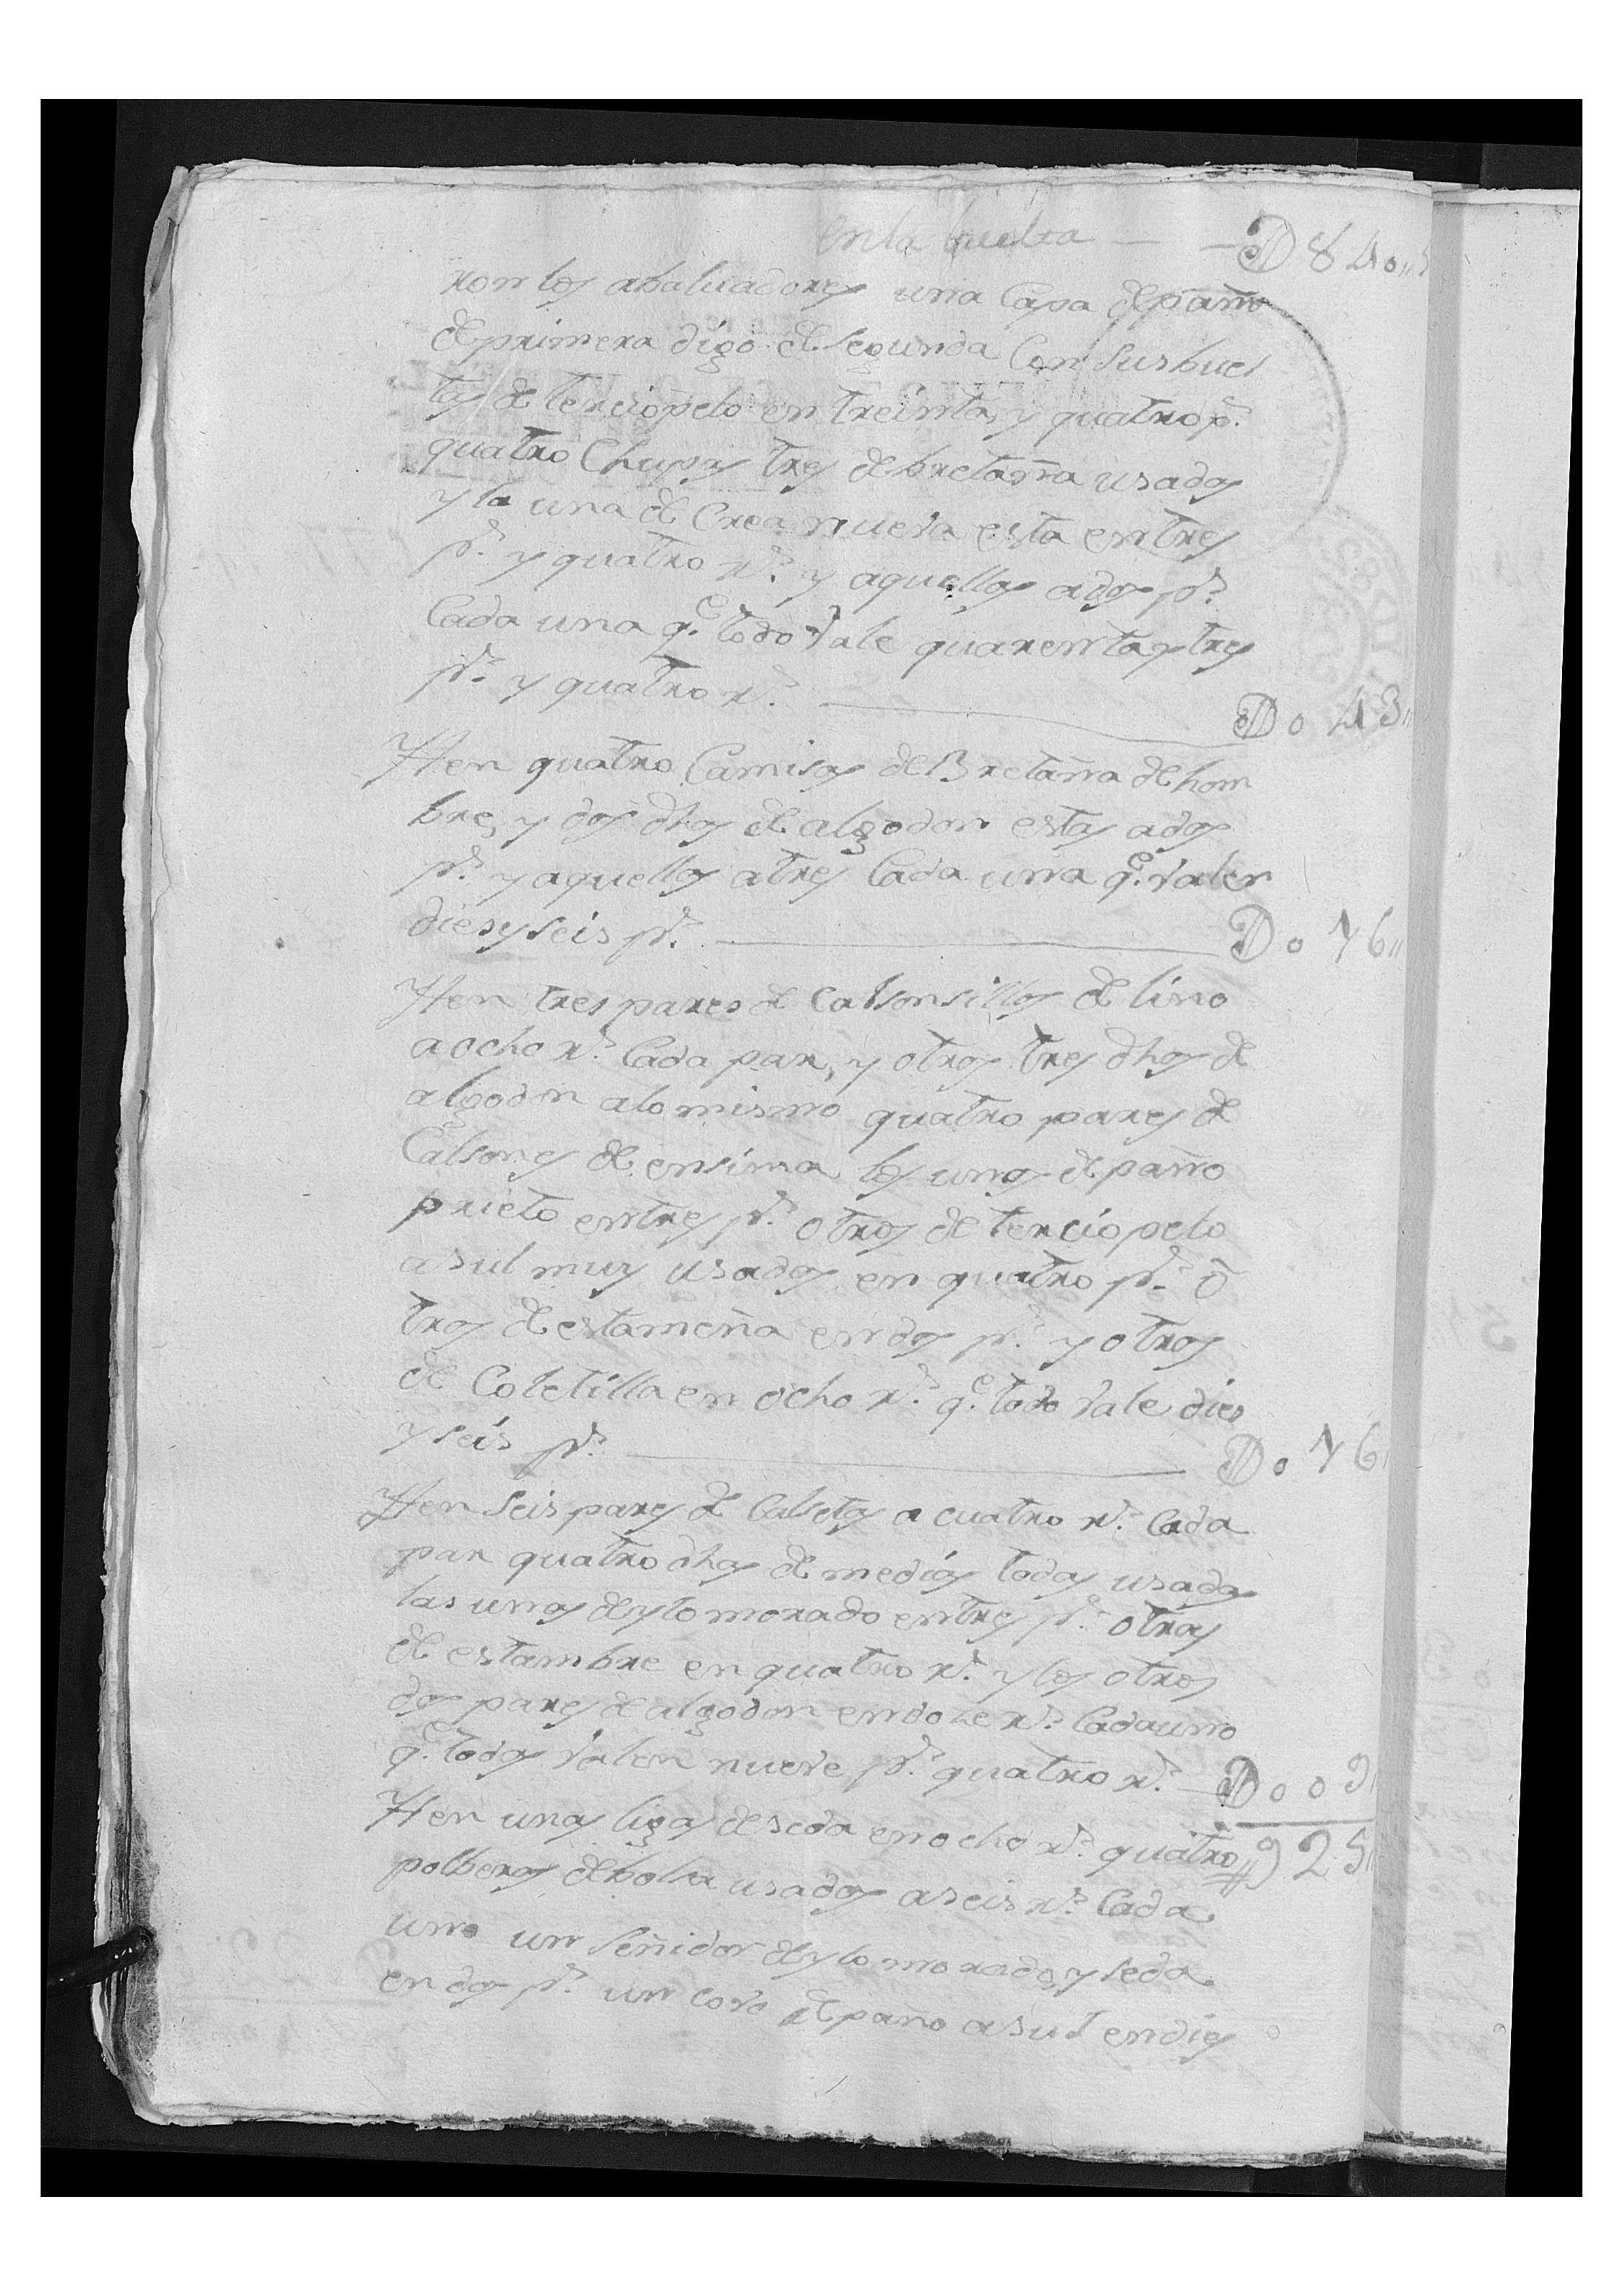 en la buelta — — D 840,,
ron los abaluadores una Capa de paño
de primera digo de segunda Con sus buel
tas de terciopelo en treinta y quatro p.s
quatro Chupas tres de bretaña usados
y la una de Crea nueva esta en tres
p.s y quatro r.s y aquellas a dos p.s
Cada una q.e todo Vale quarenta y tres
p.s y quatro r.s — D 0 43,,
Yten quatro Camisas de Bretaña de hom
bre, y dos dhas de algodon estas a dos
p.s y aquellas a tres Cada una q.e valen
dies y seis p.s — D 0 16,,
Yten tres pares de Calsonsillos de lino
a ocho r.s Cada par, y otros tres dhos de
algodon a lo mismo quatro pares de
Calsones de ensima los unos de paño
prieto en tres p.s otros de terciopelo
asul muy usados en quatro p.s o
tros de estameña en dos p.s y otros
de Coletilla en ocho r.s q.e todo Vale dies
y seis p.s — D 0 16,
Yten seis pares de Calsetas a cuatro r.s Cada
par quatro dhas de medias todas usadas
las unas de ylo morado en tres p.s otras
de estambre en quatro r.s y los otros
dos pares de algodon en doze r.s Cada uno
q.e todas Valen nueve p.s quatro r.s — D 0 0 9,
Yten unas ligas de seda en ocho r.s quatro # 925,,
polberos de bolsa usados a seis r.s Cada
uno un señidor de ylo morado, y seda
en dos p.s un de paño asul en dies